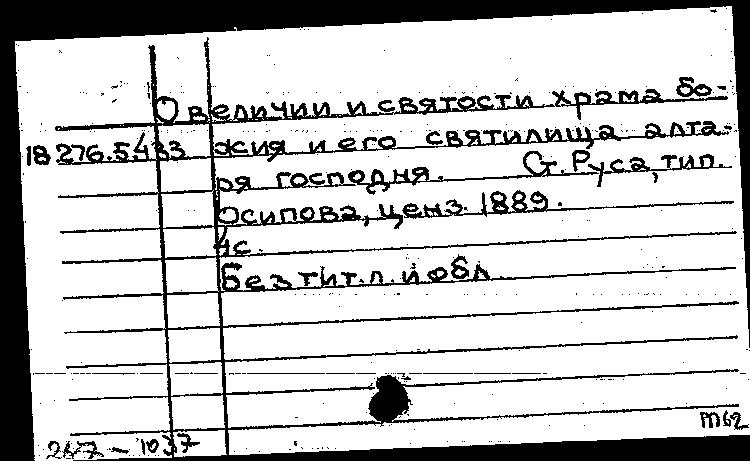 О величии и святости храма бо-
18 276.5.433 жия и его святилища алта-
ря господня. Ст. Руса, тип.
Осипова, ценз. 1889.
4с.
Без тит. л. и обл.
m62
267 - 1037